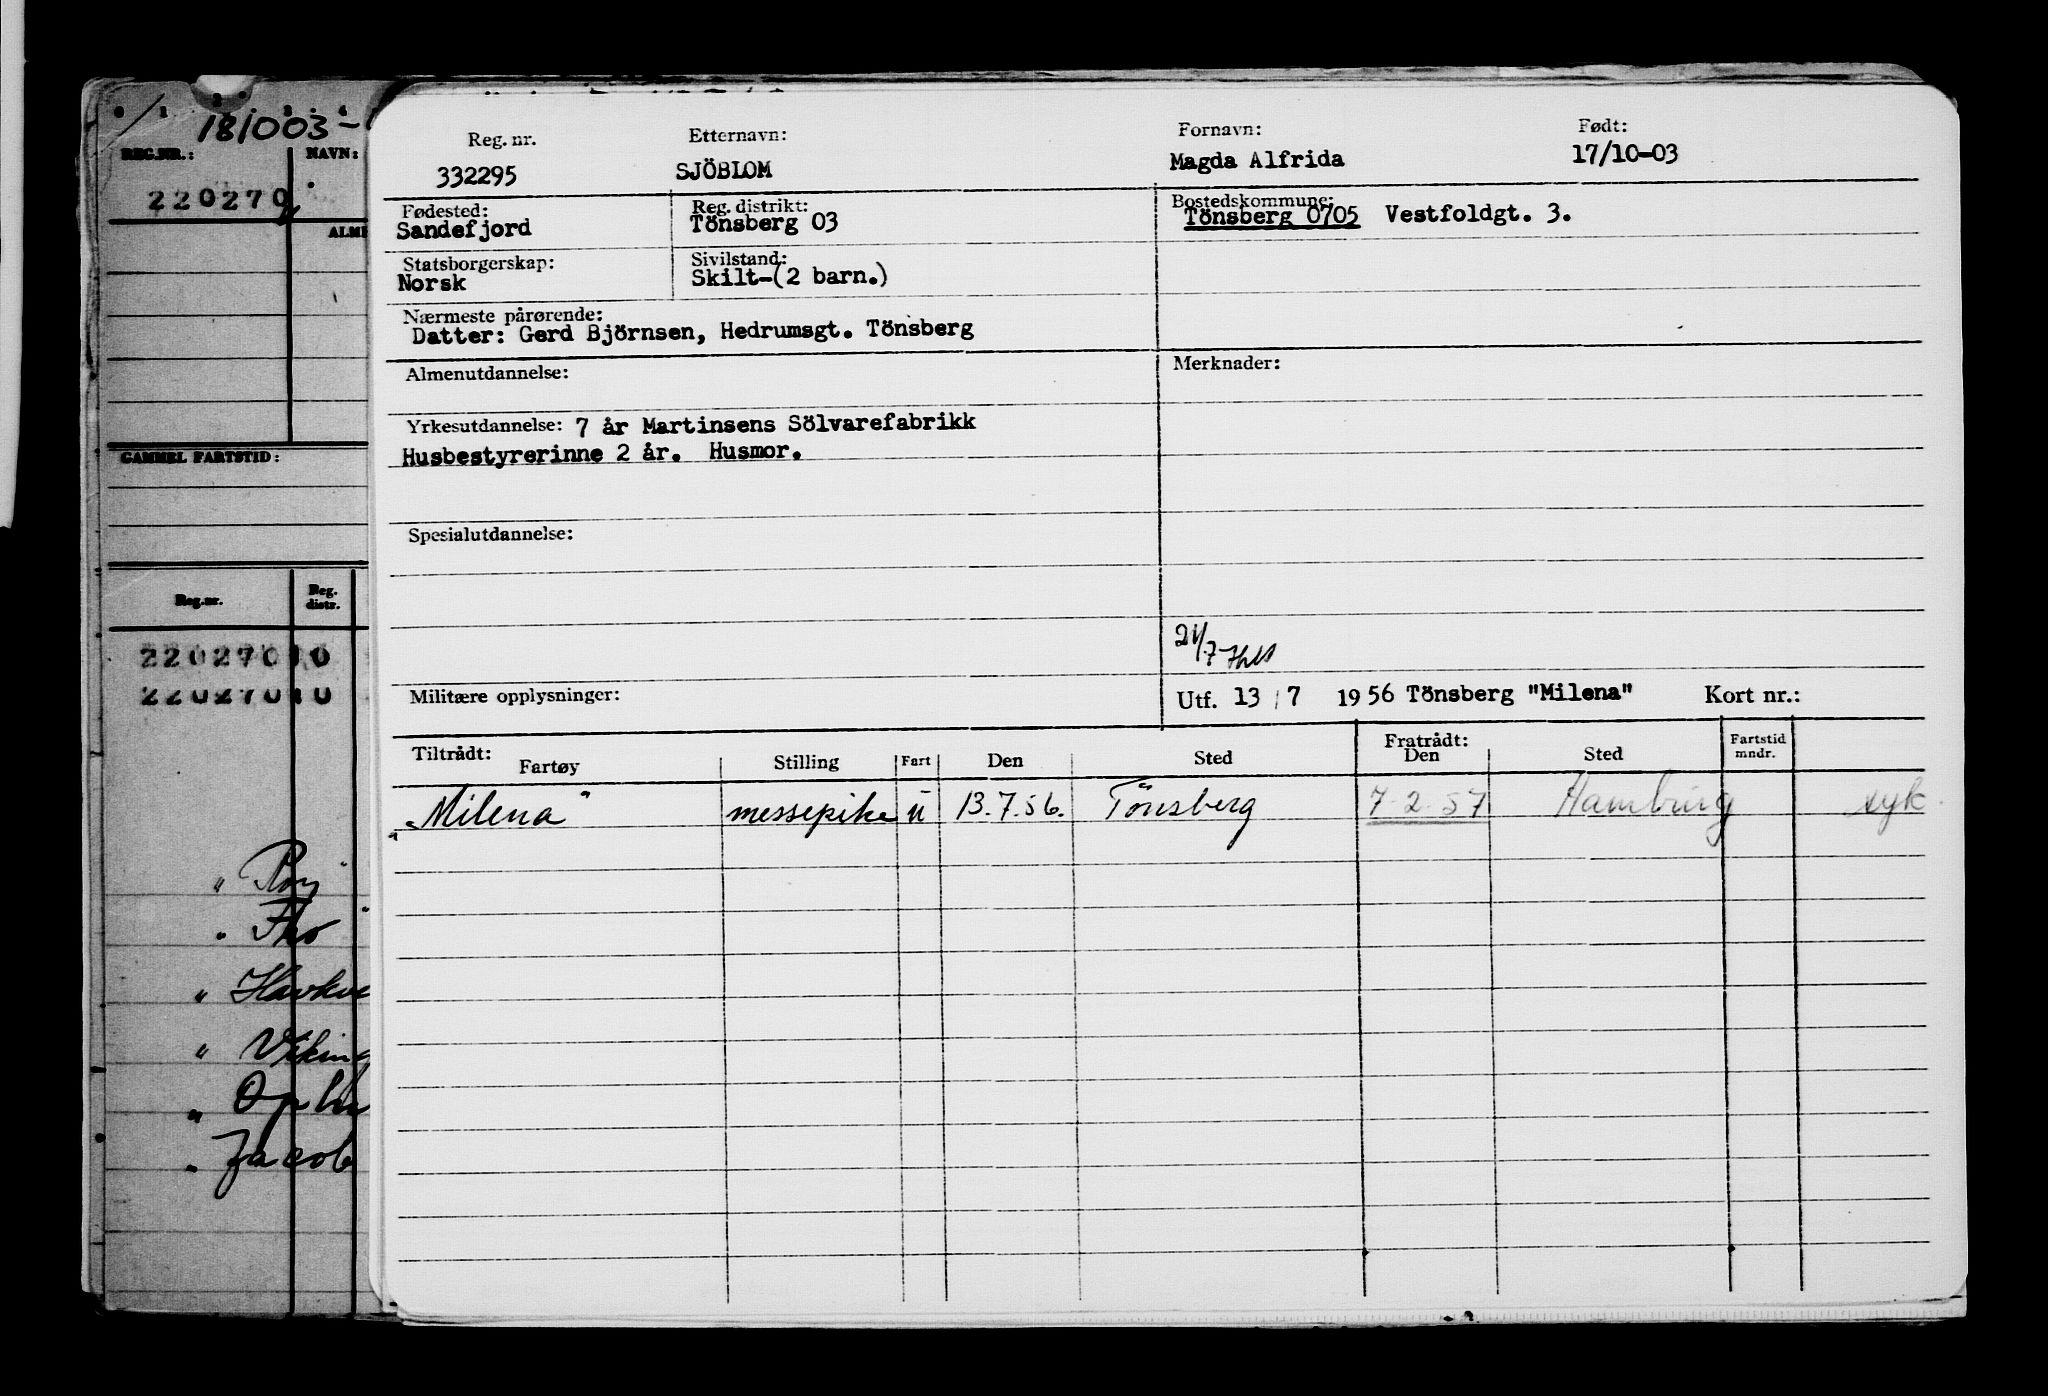 181003-
REG.NR.:
NAVN:
220270
ALM
GAMMEL FARTSTID:
Reg.nr.
Reg. distr.
220270 10
220270 10
"
" Tho
" Havkve
" Viking
"
" Jacob
Reg. nr. Etternavn: Fornavn: Født:
332295 SJÖBLOM Magda Alfrida 17/10-03
Fødested: Reg. distrikt: Bostedskommune:
Sandefjord Tönsberg 03 Tönsberg 0705 Vestfoldgt. 3.
Statsborgerskap: Sivilstand:
Norsk Skilt-(2 barn.)
Nærmeste pårørende:
Datter: Gerd Björnsen, Hedrumsgt. Tönsberg
Almenutdannelse: Merknader:
Yrkesutdannelse: 7 år Martinsens Sölvarefabrikk
Husbestyrerinne 2 år. Husmor.
Spesialutdannelse:
21/7
Militære opplysninger: Utf. 13 / 7 1956 Tönsberg "Milena" Kort nr.:
Tiltrådt: Fratrådt:
Fartøy Stilling Fart Den Sted Den Sted Fartstid mndr.
"Milena" messepike u 13.7.56. Tönsberg 7-2-57 Hamburg syk.